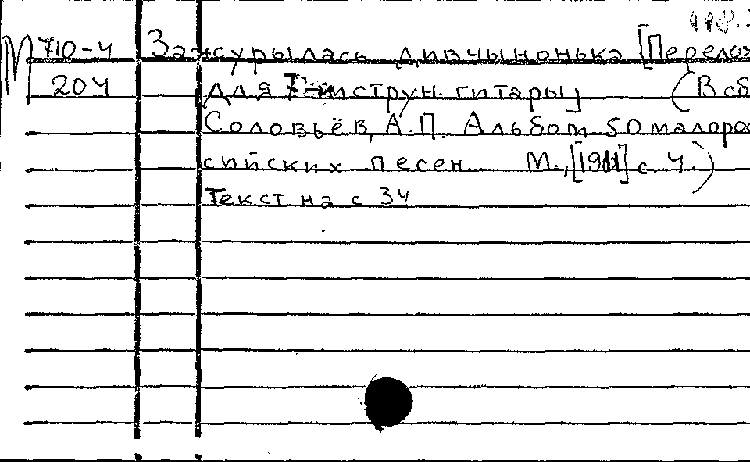 М 710-4 Зажурылась дивчынонька [Перелож
204 для 7-ми струн. гитары] (В сб
Соловьёв, А.П. Альбом 50 малорос
сийских песен М., [1911] с 4.)
Текст на с 34